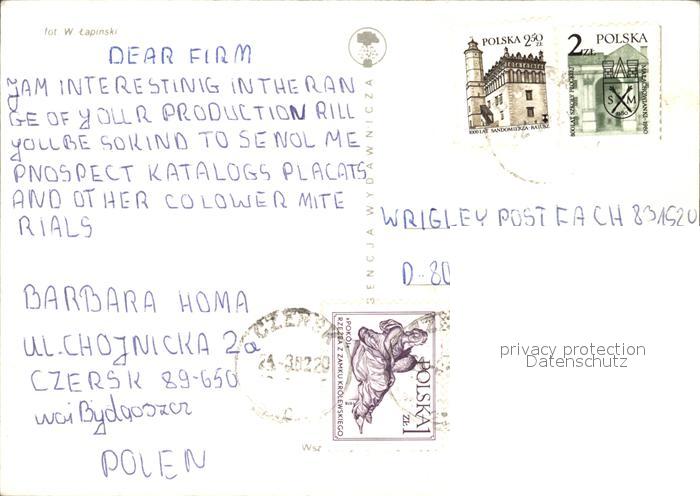 fot W Łapiński
DEAR FIRM
JAM INTERESTINIG IN THE RAN
GE OF YOUR PRODUCTION RILL
YOU BE SO KIND TO SENOL ME
PNOSPECT KATALOGS PLACATS
AND OTHER COLOWER MITE
RIALS
BARBARA HOMA
UL. CHOJNICKA 2a
CZERSK 89-650
woj Bydgoszcz
POLEN
AGENCJA WYDAWNICZA
POLSKA 2.50 ZŁ
1000 LAT SANDOMIERZA-RATUSZ
2 ZŁ POLSKA
S M
WRIGLEY POSTFACH 831520
D-80
CZERSK
-3.82 20
POLSKA 1 ZŁ
"POKÓJ"
RZEŹBA Z ZAMKU KRÓLEWSKIEGO
privacy protection
Datenschutz